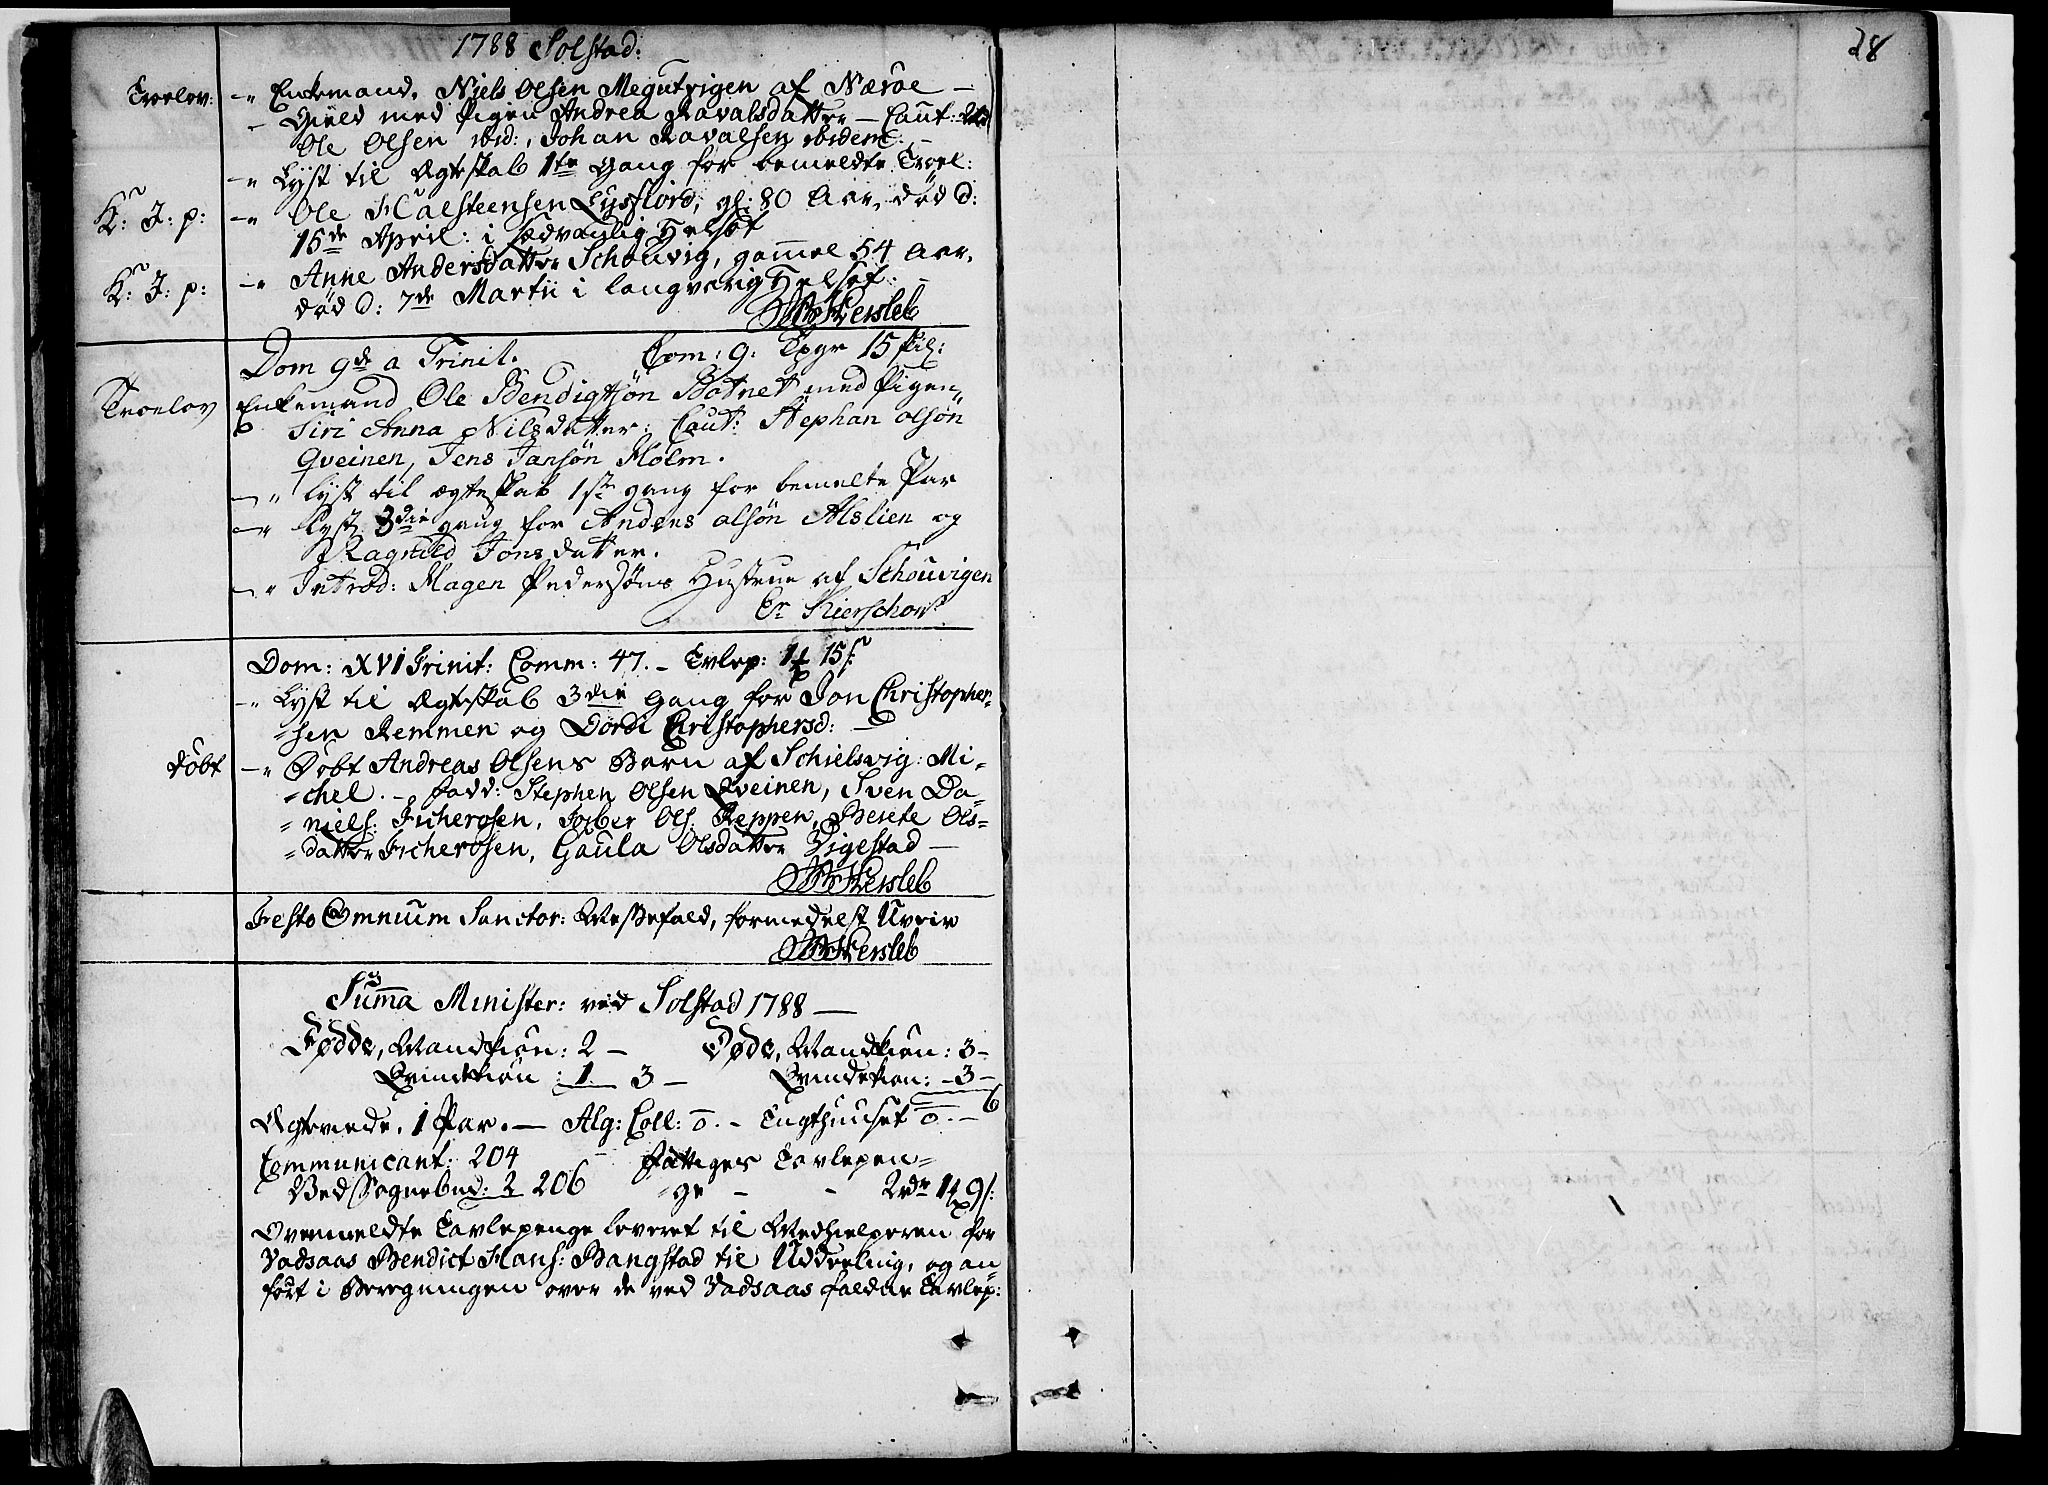 1788 Solstad.
28
Troelov: -" Enkemand. Niels Olsen Megutvigen af Nærøe -
- Gield med Pigen Andrea Kavalsdatter - Caut:
Ole Olsen ibid:, Johan Kavalsen ibidem. -
-" Lyst til Ægteskab 1te Gang for bemeldte Troel:
K: J: p: -" Ole Halsteensen Lysfiord, gl: 80 Aar, død d:
15de April: i sædvanlig Helsot
K: J: p: -" Anne Andersdatter Schouvig, gammel 54 Aar,
død d: 7de Martii i langvarig Helsot. -
Hersleb
Dom 9de a Trinit. Com: 9. Tpge 15 skil:
Troelov Enkemand Ole Bendigtsøn Botnet med Pigen
Siri Anna Nilsdatter: Caut: Stephan olsøn
Qveinen, Jens Jansøn Holm.
-" lyst til ægteskab 1ste gang for bemelte Par
-" lyst 3die gang for Anders olsøn Alslien og
Ragnild Jonsdatter.
-" Introd: Hagen Pedersøns Hustrue af Schouvigen
Er Kierschow
Dom: XVI Trinit: Comm: 47. - Tvlep: 1 15 s:
-" Lyst til Ægteskab 3die Gang for Jon Christopher-
-sen Remmen og Dordi Christophersd: -
Døbt -" Døbt Andreas Olsens Barn af Schielsvig: Mi-
-chel. - Fadd: Stephen Olsen Qveinen, Sven Da-
-niels: Ficherosen, Ols: Reppen, Berete Ols-
-datter Ficherosen, Gaula Olsdatter Digestad -
Hersleb
Festo Omnium Sanctor: Messefald, formedelst Uveir
Hersleb
Summa Minister: ved Solstad 1788 -
Fødde, Mandkiøn: 2 - Døde, Mandkiøn: 3 -
Qvindekiøn: 1. 3 - Qvindekiøn: - 3 -
6
Ægteviede. 1 Par. - Alg: Coll: 0. - Tugthuuset 0. -
Communicant: 204 - Fattiges Tavlepen=
Ved Sognebud: 2 206 =ge - - 2rdr 1 9 s:
Ovenmeldte Tavlepenge leveret til Medhielperen for
Vadsaas Bendict Hans: Bangstad til Uddeeling, og an=
ført i Beregningen over de ved Vadsaas faldne Tavlep: